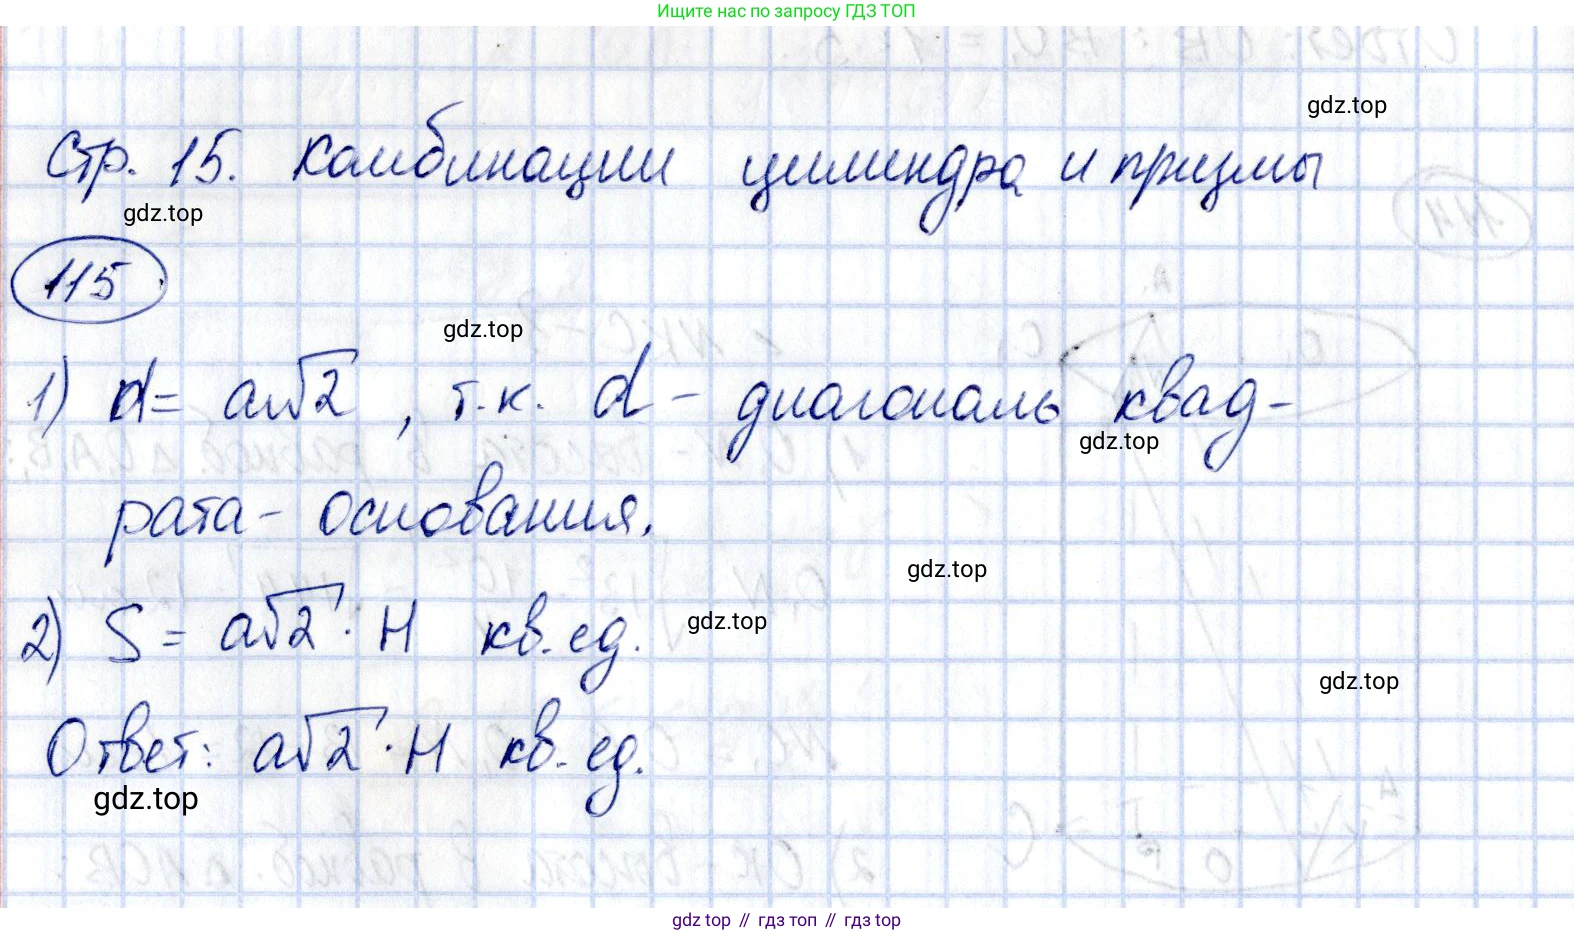 Ищите нас по запросу ГДЗ ТОП
gdz.top
Стр. 15. Комбинации цилиндра и призмы
gdz.top
115
gdz.top
1) d = a√2, т.к. d - диагональ квад-
gdz.top
рата - основания.
gdz.top
2) S = a√2 · H кв. ед.
gdz.top
gdz.top
Ответ: a√2 · H кв. ед.
gdz.top
gdz top // гдз топ // гдз top